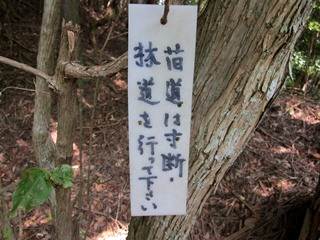 道は寸断・
林道を行って下さい